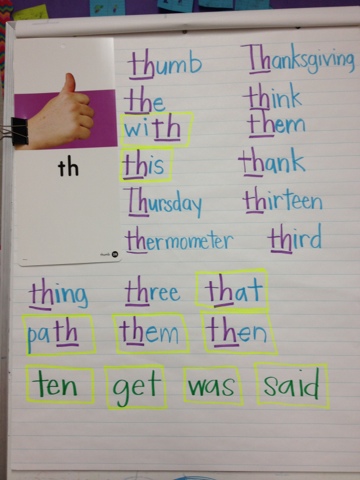 th
thumb Thanksgiving
the think
with them
this thank
Thursday thirteen
thermometer third
thing three that
path them then
ten get was said